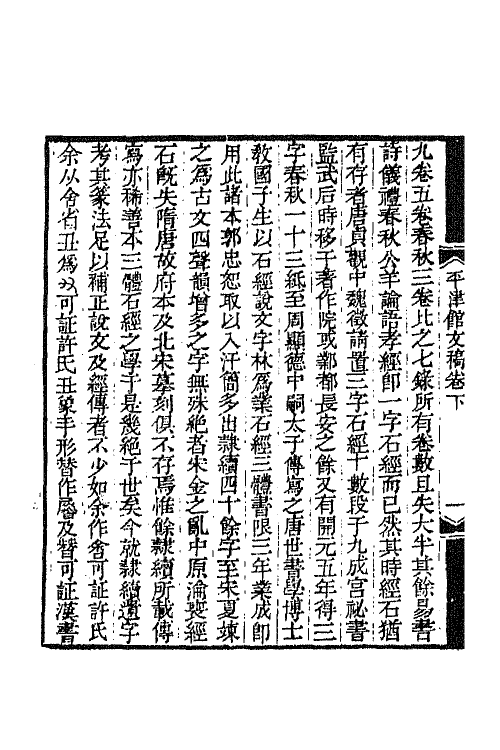 平津館文稿卷下
一
九卷五卷春秋三卷比之七錄所有卷數且失大半其餘易書
詩儀禮春秋公羊論語孝經卽一字石經而已然其時經石猶
有存者唐貞觀中魏徵請置三字石經十數段于九成宮祕書
監武后時移于著作院或鄴都長安之餘又有開元五年得三
字春秋一十三紙至周顯德中嗣太子傳寫之唐世書學博士
敎國子生以石經說文字林爲業石經三體書限三年業成卽
用此諸本郭忠恕取以入汗簡多出隸續四十餘字至宋夏竦
之爲古文四聲韻增多之字無殊絕者宋金之亂中原淪喪經
石旣失隋唐故府本及北宋摹刻俱不存焉惟餘隸續所載傳
寫亦稀善本三體石經之學于是幾絕于世矣今就隸續遺字
考其篆法足以補正說文及經傳者不少如余作舍可証許氏
余从舍省丑爲𠃨可証許氏丑象手形替作暜及朁可証漢書